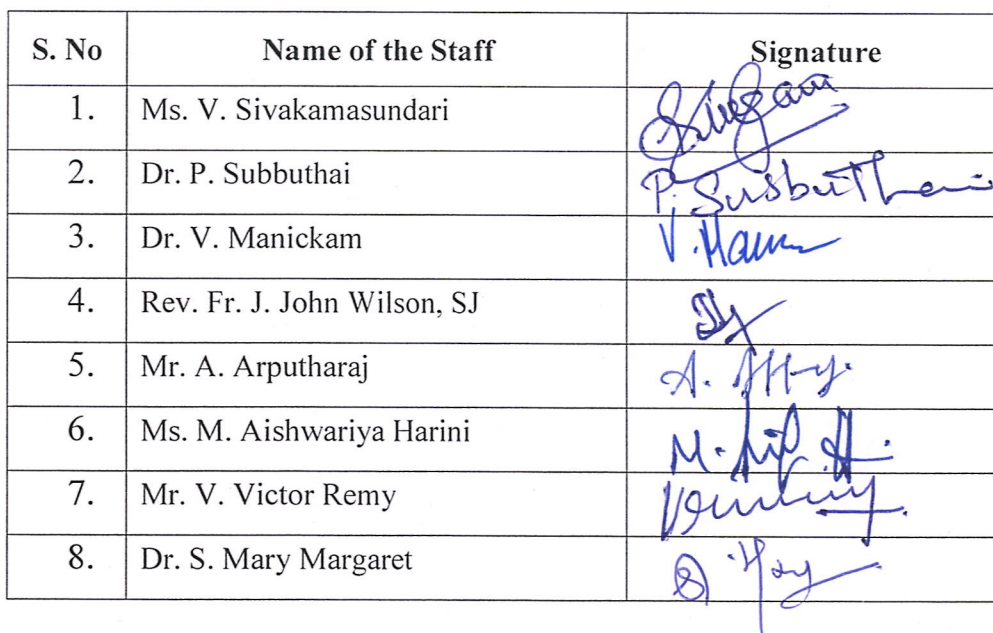 S. No Name of the Staff Signature
1. Ms. V. Sivakamasundari
2. Dr. P. Subbuthai P. Subbuthai
3. Dr. V. Manickam
4. Rev. Fr. J. John Wilson, SJ
5. Mr. A. Arputharaj
6. Ms. M. Aishwariya Harini
7. Mr. V. Victor Remy
8. Dr. S. Mary Margaret